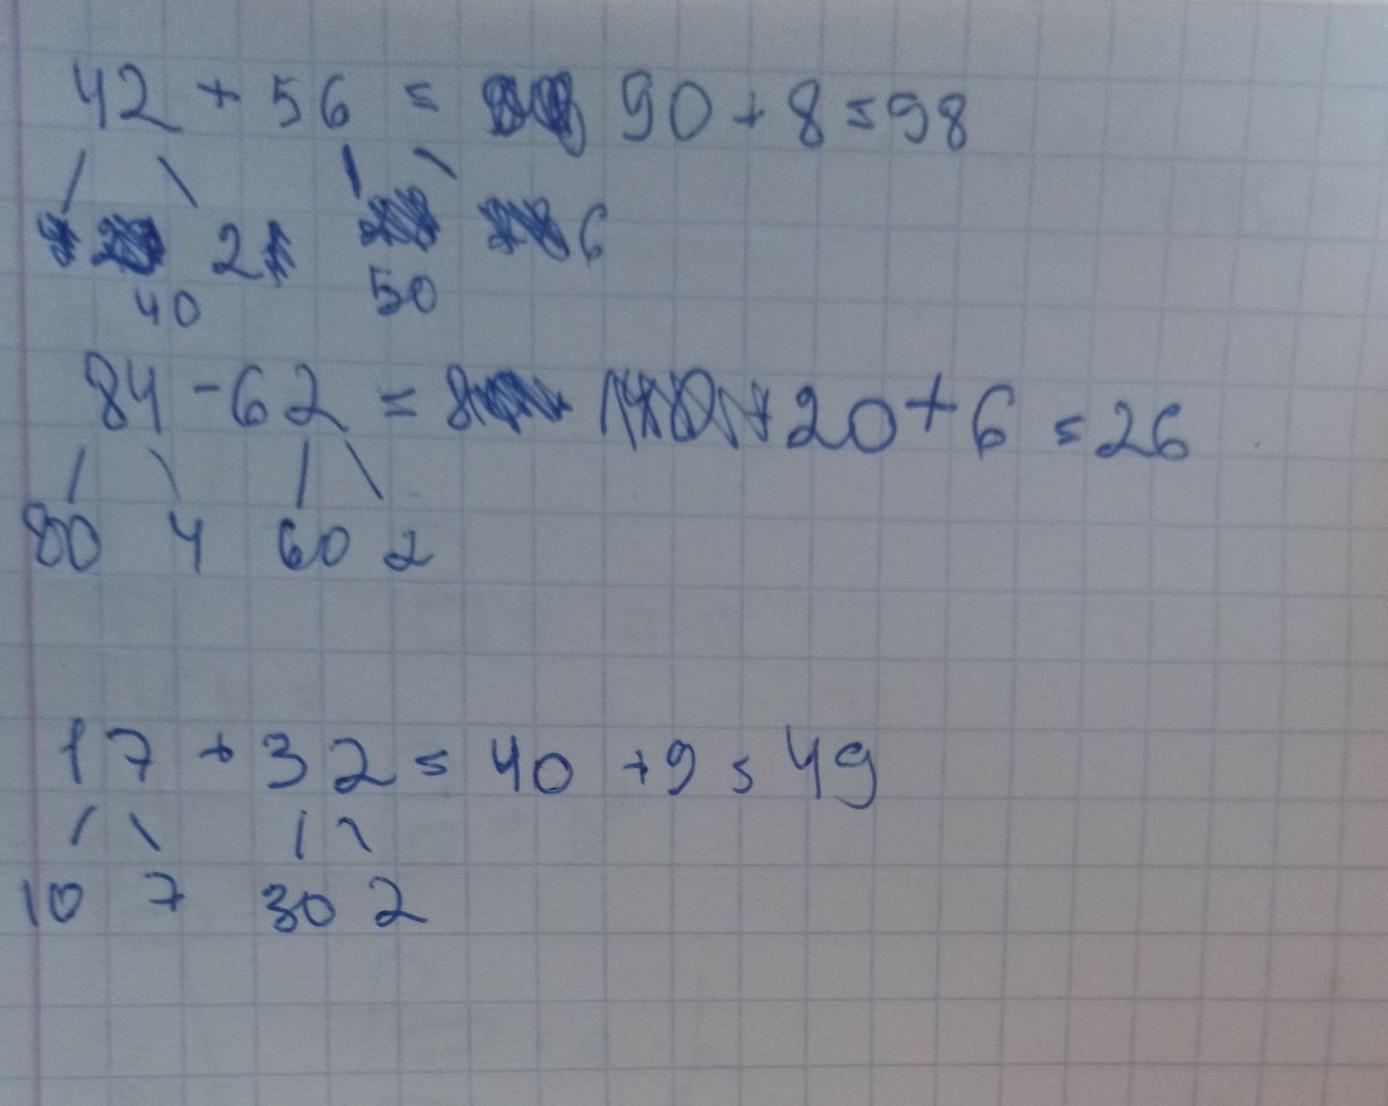 42 + 56 = 90 + 8 = 98
2 6
40 50
84 - 62 = 20 + 6 = 26
80 4 60 2
17 + 32 = 40 + 9 = 49
10 7 30 2